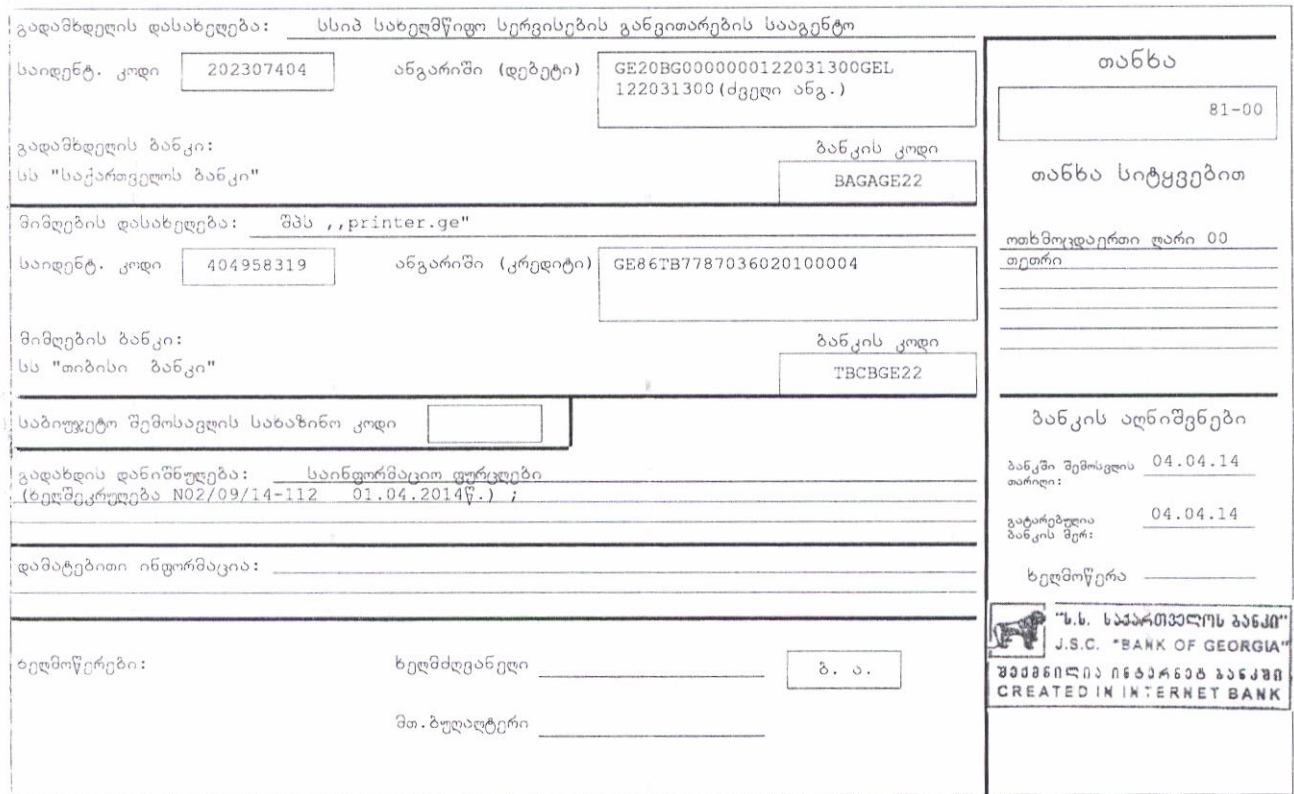 გადამხდელის დასახელება: სსიპ სახელმწიფო სერვისების განვითარების სააგენტო
საიდენტ. კოდი 202307404 ანგარიში (დებეტი) GE20BG0000000122031300GEL
122031300(ძველი ანგ.)
გადამხდელის ბანკი: ბანკის კოდი
სს "საქართველოს ბანკი" BAGAGE22
მიმღების დასახელება: შპს ,,printer.ge"
საიდენტ. კოდი 404958319 ანგარიში (კრედიტი) GE86TB7787036020100004
მიმღების ბანკი: ბანკის კოდი
სს "თიბისი ბანკი" TBCBGE22
საბიუჯეტო შემოსავლის სახაზინო კოდი
გადახდის დანიშნულება: საინფორმაციო ფურცლები
(ხელშეკრულება N02/09/14-112 01.04.2014წ.) ;
დამატებითი ინფორმაცია:
ხელმოწერები: ხელმძღვანელი ბ. ა.
მთ.ბუღალტერი
თანხა
81-00
თანხა სიტყვებით
ოთხმოცდაერთი ლარი 00
თეთრი
ბანკის აღნიშვნები
ბანკში შემოსვლის 04.04.14
თარიღი:
გატარებულია 04.04.14
ბანკის მერ:
ხელმოწერა
"ს.ს. საქართველოს ბანკი"
J.S.C. "BANK OF GEORGIA"
შექმნილია ინტერნეტ ბანკში
CREATED IN INTERNET BANK